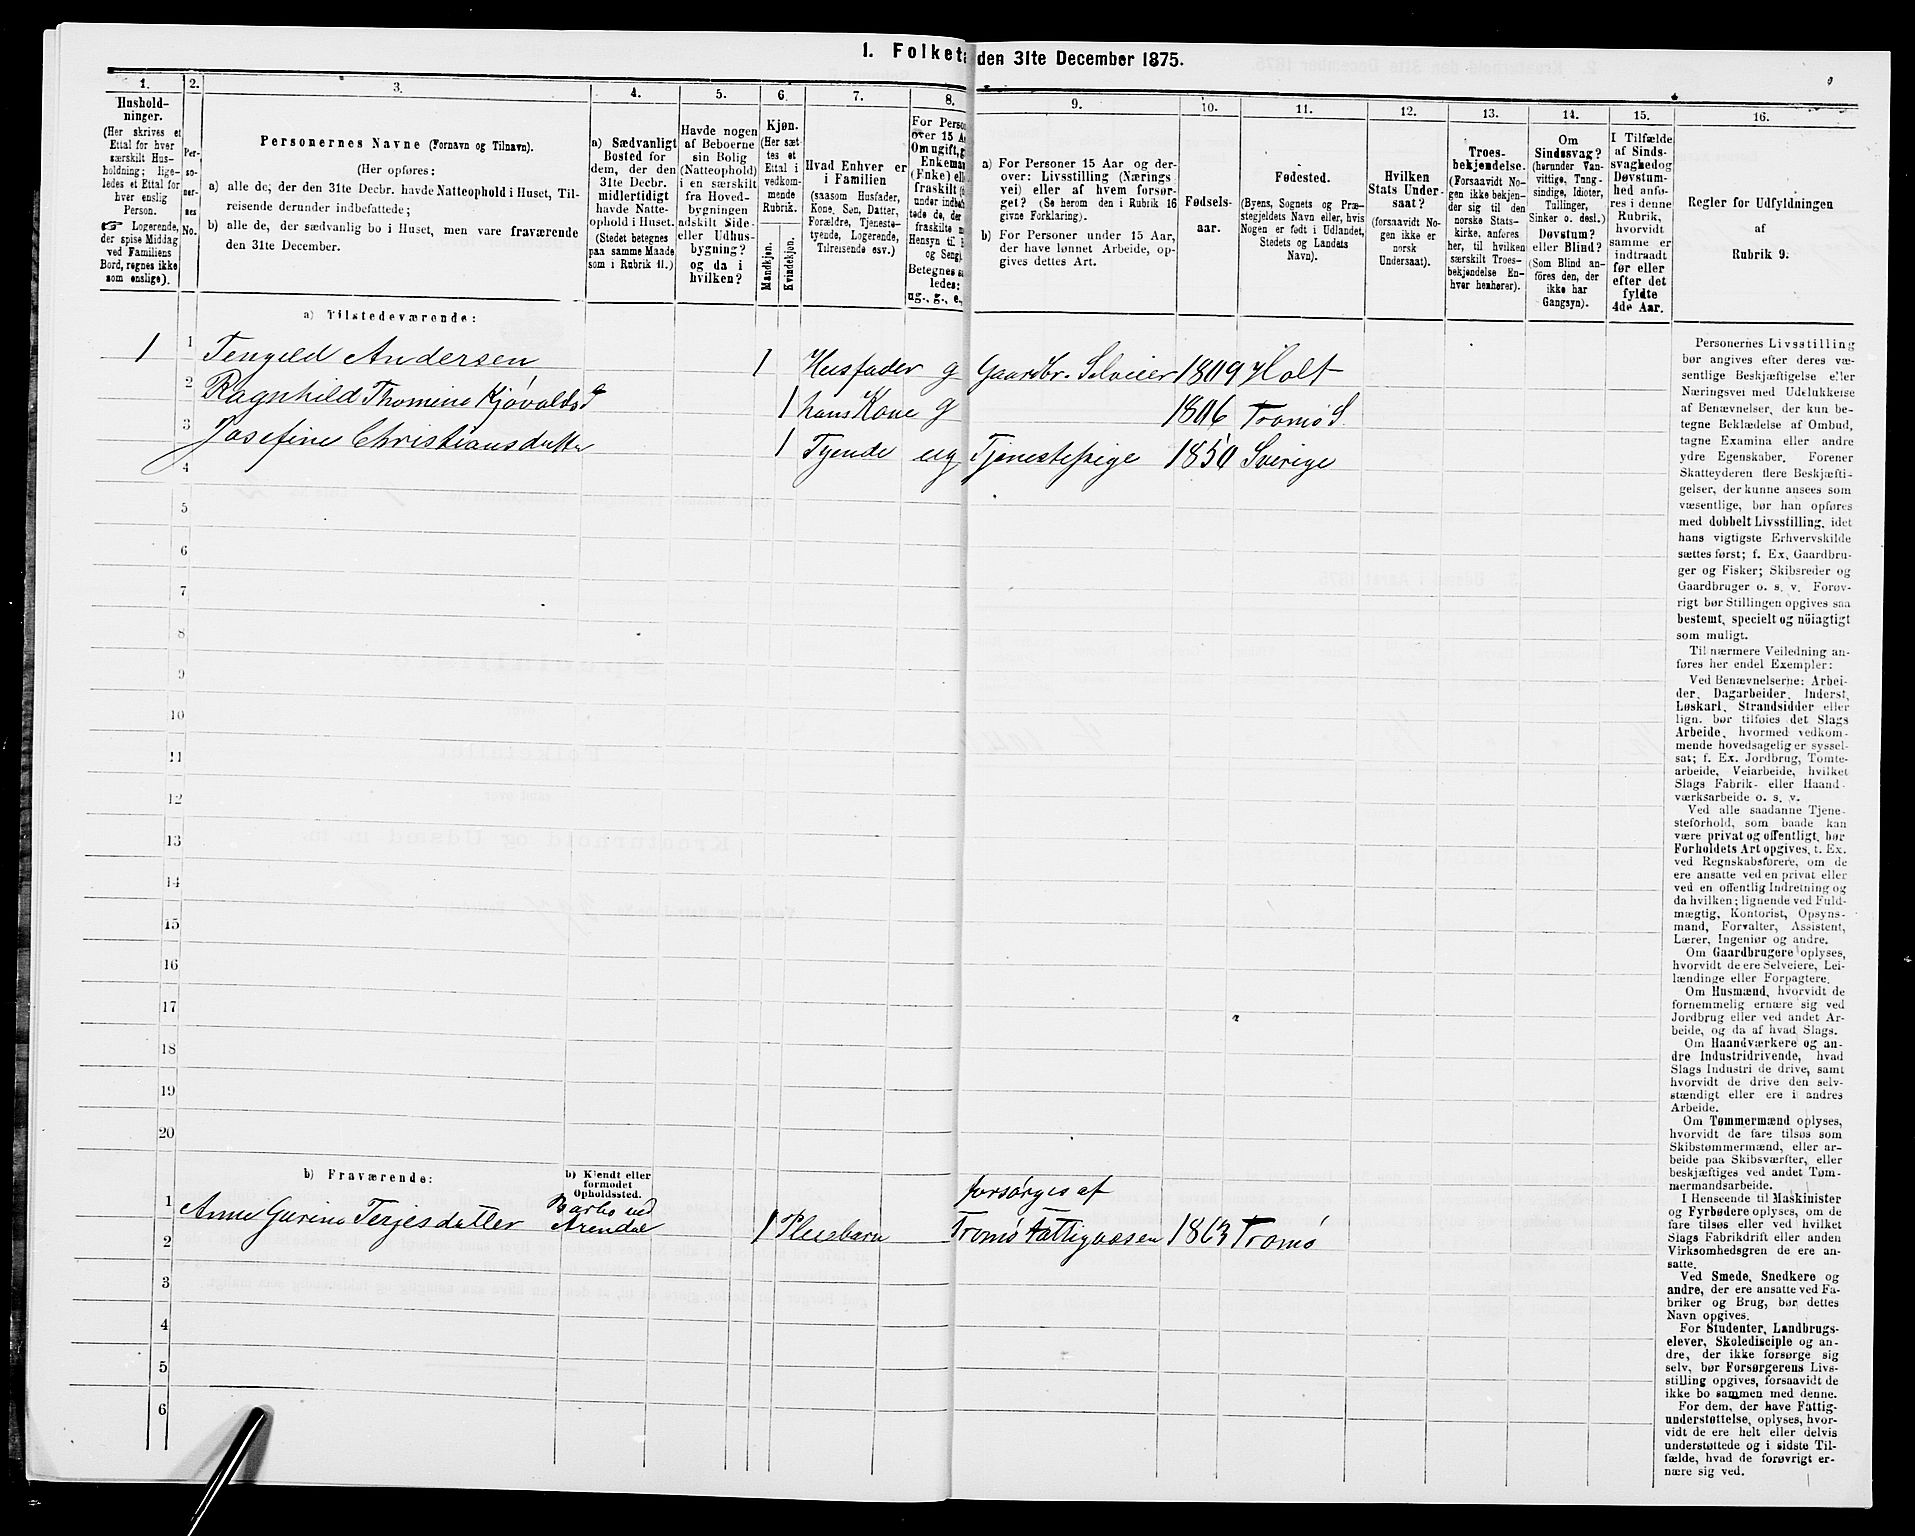 1. Folketæ den 31te December 1875.
1. 2. 3. 4. 5. 6. 7. 8. 9. 10. 11. 12. 13. 14. 15. 16.
Hushold-
ninger.
(Her skrives et
Ettal for hver
særskilt Hus-
holdning; lige-
ledes et Ettal for
hver enslig
Person.
☞ Logerende,
der spise Middag
ved Familiens
Bord, regnes ikke
som enslige).
Per-
so-
ner-
nes
No.
Personernes Navne (Fornavn og Tilnavn).
(Her opføres:
a) alle de, der den 31te Decbr. havde Natteophold i Huset, Til-
reisende derunder indbefattede;
b) alle de, der sædvanlig bo i Huset, men vare fraværende
den 31te December.
a) Sædvanligt
Bosted for
dem, der den
31te Decbr.
midlertidigt
havde Natte-
ophold i Huset.
(Stedet betegnes
paa samme Maade
som i Rubrik 11.)
Havde nogen
af Beboerne
sin Bolig
(Natteophold)
i en særskilt
fra Hoved-
bygningen
adskilt Side-
eller Udhus-
bygning?
og da i
hvilken?
Kjøn.
(Her sæt-
tes et
Ettal i
vedkom-
mende
Rubrik.
Mandkjøn.
Kvindekjøn.
Hvad Enhver er
i Familien
(saasom Husfader,
Kone, Søn, Datter,
Forældre, Tjeneste-
tyende, Logerende,
Tilreisende osv.)
For Perso
over 15 Aa
Om ugift, g
Enkeman
(Enke) elle
fraskilt (d
under indbe
tede de, der
fraskilte m
Hensyn til B
og Seng).
Betegnes sa
ledes:
ug., g., e.,
a) For Personer 15 Aar og der-
over: Livsstilling (Nærings-
vei) eller af hvem forsør-
get? (Se herom den i Rubrik 16
givne Forklaring).
b) For Personer under 15 Aar,
der have lønnet Arbeide, op-
gives dettes Art.
Fødsels-
aar.
Fødested.
(Byens, Sognets og Præ-
stegjeldets Navn eller, hvis
Nogen er født i Udlandet,
Stedets og Landets
Navn).
Hvilken
Stats Under-
saat?
(forsaavidt No-
gen ikke er
norsk
Undersaat).
Troes-
bekjendelse.
(Forsaavidt No-
gen ikke bekjen-
der sig til den
norske Stats-
kirke, anføres
her, til hvilken
særskilt Troes-
bekjendelse En-
hver henhører).
Om
Sindssvag?
(herunder Van-
vittige, Tung-
sindige, Idioter,
Tullinger,
Sinker o. desl.)
Døvstum?
eller Blind?
(Som Blind an-
føres den, der
ikke har
Gangsyn).
I Tilfælde
af Sinds-
svaghed og
Døvstum-
hed anfø-
res i denne
Rubrik,
hvorvidt
samme er
indtraadt
før eller
efter det
fyldte
4de Aar.
Regler for Udfyldningen
af
Rubrik 9.
a) Tilstedeværende:
1 1 Tengeld Andersen 1 Husfader g Gaardbr. Selveier 1809 Holt
2 Ragnhild Thomine Kjøvaldsd 1 hans Kone g 1806 Tromø S.
3 Josefine Christiansdatter 1 Tyende ug Tjenestepige 1850 Sverige
4
5
6
7
8
9
10
11
12
13
14
15
16
17
18
19
20
b) Fraværende:
b) Kjendt eller
formodet
Opholdssted.
forsørges af
1 Anne Gurine Terjesdatter Barbo ved
Arendal 1 Pleiebarn Tromø Fattigvæsen 1863 Tromø
2
3
4
5
6
Personernes Livsstilling
bør angives efter deres væ-
sentlige Beskjæftigelse eller
Næringsvei med Udelukkelse
af Benævnelser, der kun be-
tegne Beklædelse af Ombud,
tagne Examina eller andre
ydre Egenskaber. Forener
Skatteyderen flere Beskjæfti-
gelser, der kunne ansees som
væsentlige, bør han opføres
med dobbelt Livsstilling, idet
hans vigtigste Erhvervskilde
sættes først; f. Ex. Gaardbru-
ger og Fisker; Skibsreder og
Gaardbruger o. s. v. Forøv-
rigt bør Stillingen opgives saa
bestemt, specielt og nöiagtigt
som muligt.
Til nærmere Veiledning an-
føres her endel Exempler:
Ved Benævnelserne: Arbei-
der, Dagarbeider, Inderst,
Løskarl, Strandsidder eller
lign. bør tilføies det Slags
Arbeide, hvormed vedkom-
mende hovedsagelig er syssel-
sat; f. Ex. Jordbrug, Tomte-
arbeide, Veiarbeide, hvilket
Slags Fabrik- eller Haand-
værksarbeide o. s. v.
Ved alle saadanne Tjene-
steforhold, som baade kan
være privat og offentligt, bør
Forholdets Art opgives, t. Ex.
ved Regnskabsførere, om de
ere ansatte ved en privat eller
ved en offentlig Indretning og
da hvilken; lignende ved Fuld-
mægtig, Kontorist, Opsyns-
mand, Forvalter, Assistent,
Lærer, Ingeniør og andre.
Om Gaardbrugere oplyses,
hvorvidt de ere Selveiere, Lei-
lændinge eller Forpagtere.
Om Husmænd, hvorvidt de
fornemmelig ernære sig ved
Jordbrug eller ved andet Ar-
beide, og da af hvad Slags.
Om Haandværkere og an-
dre Industridrivende, hvad
Slags Industri de drive, samt
hvorvidt de drive den selv-
stændigt eller ere i andres
Arbeide.
Om Tømmermænd oplyses,
hvorvidt de fare tilsøs som
Skibstømmermænd, eller ar-
beide paa Skibsværfter, eller
beskjæftiges ved andet Tøm-
mermandsarbeide.
I Henseende til Maskinister
og Fyrbødere oplyses, om de
fare tilsøs eller ved hvilket
Slags Fabrikdrift eller anden
Virksomhedsgren de ere an-
satte.
Ved Smede, Snedkere og
andre, der ere ansatte ved Fa-
briker og Brug, bør dettes
Navn opgives.
For Studenter, Landbrugs-
elever, Skoledisciple og an-
dre, der ikke forsørge sig
selv, bør Forsørgerens Livs-
stilling opgives, forsaavidt de
ikke bo sammen med denne.
For dem, der have Fattig-
understøttelse, oplyses, hvor-
vidt de ere helt eller delvis
understøttede og i sidste Til-
fælde, hvad de forøvrigt er-
nære sig ved.